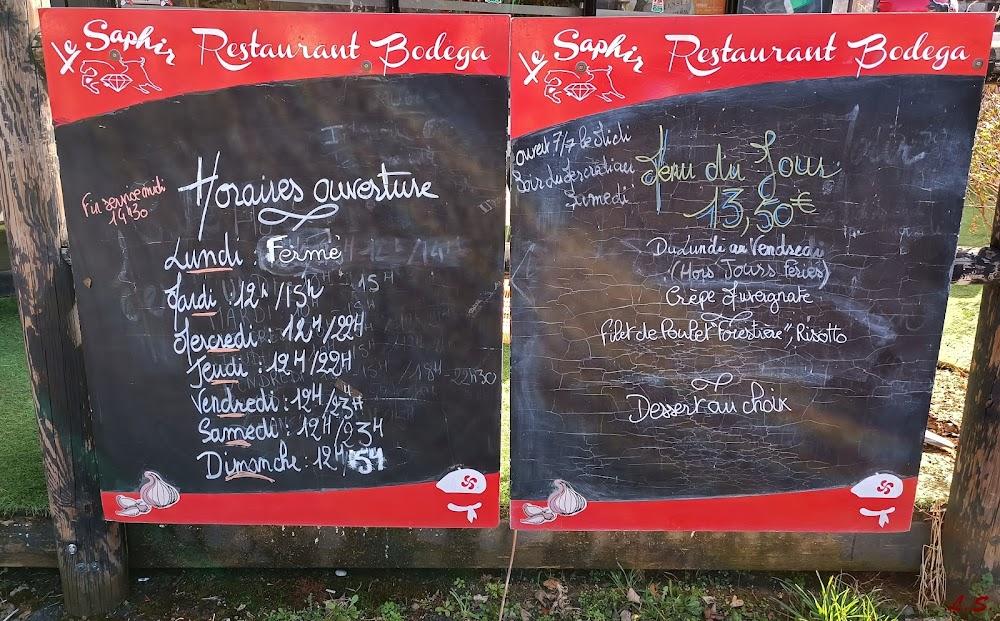 Le Saphir Restaurant Bodega
Fin service midi
14H30
Horaires ouverture
Lundi : Fermé
Mardi : 12H/15H
Mercredi : 12H/22H
Jeudi : 12H/22H
Vendredi : 12H/23H
Samedi : 12H/23H
Dimanche : 12H/
Le Saphir Restaurant Bodega
ouvert 7/7 le Midi
Soir
Samedi
Menu du Jour
13,50€
Du Lundi au Vendredi
(Hors Jours Fériés)
Crêpe Auvergnate
Filet de Poulet "Forestière", Risotto
Dessert au choix
L.S.